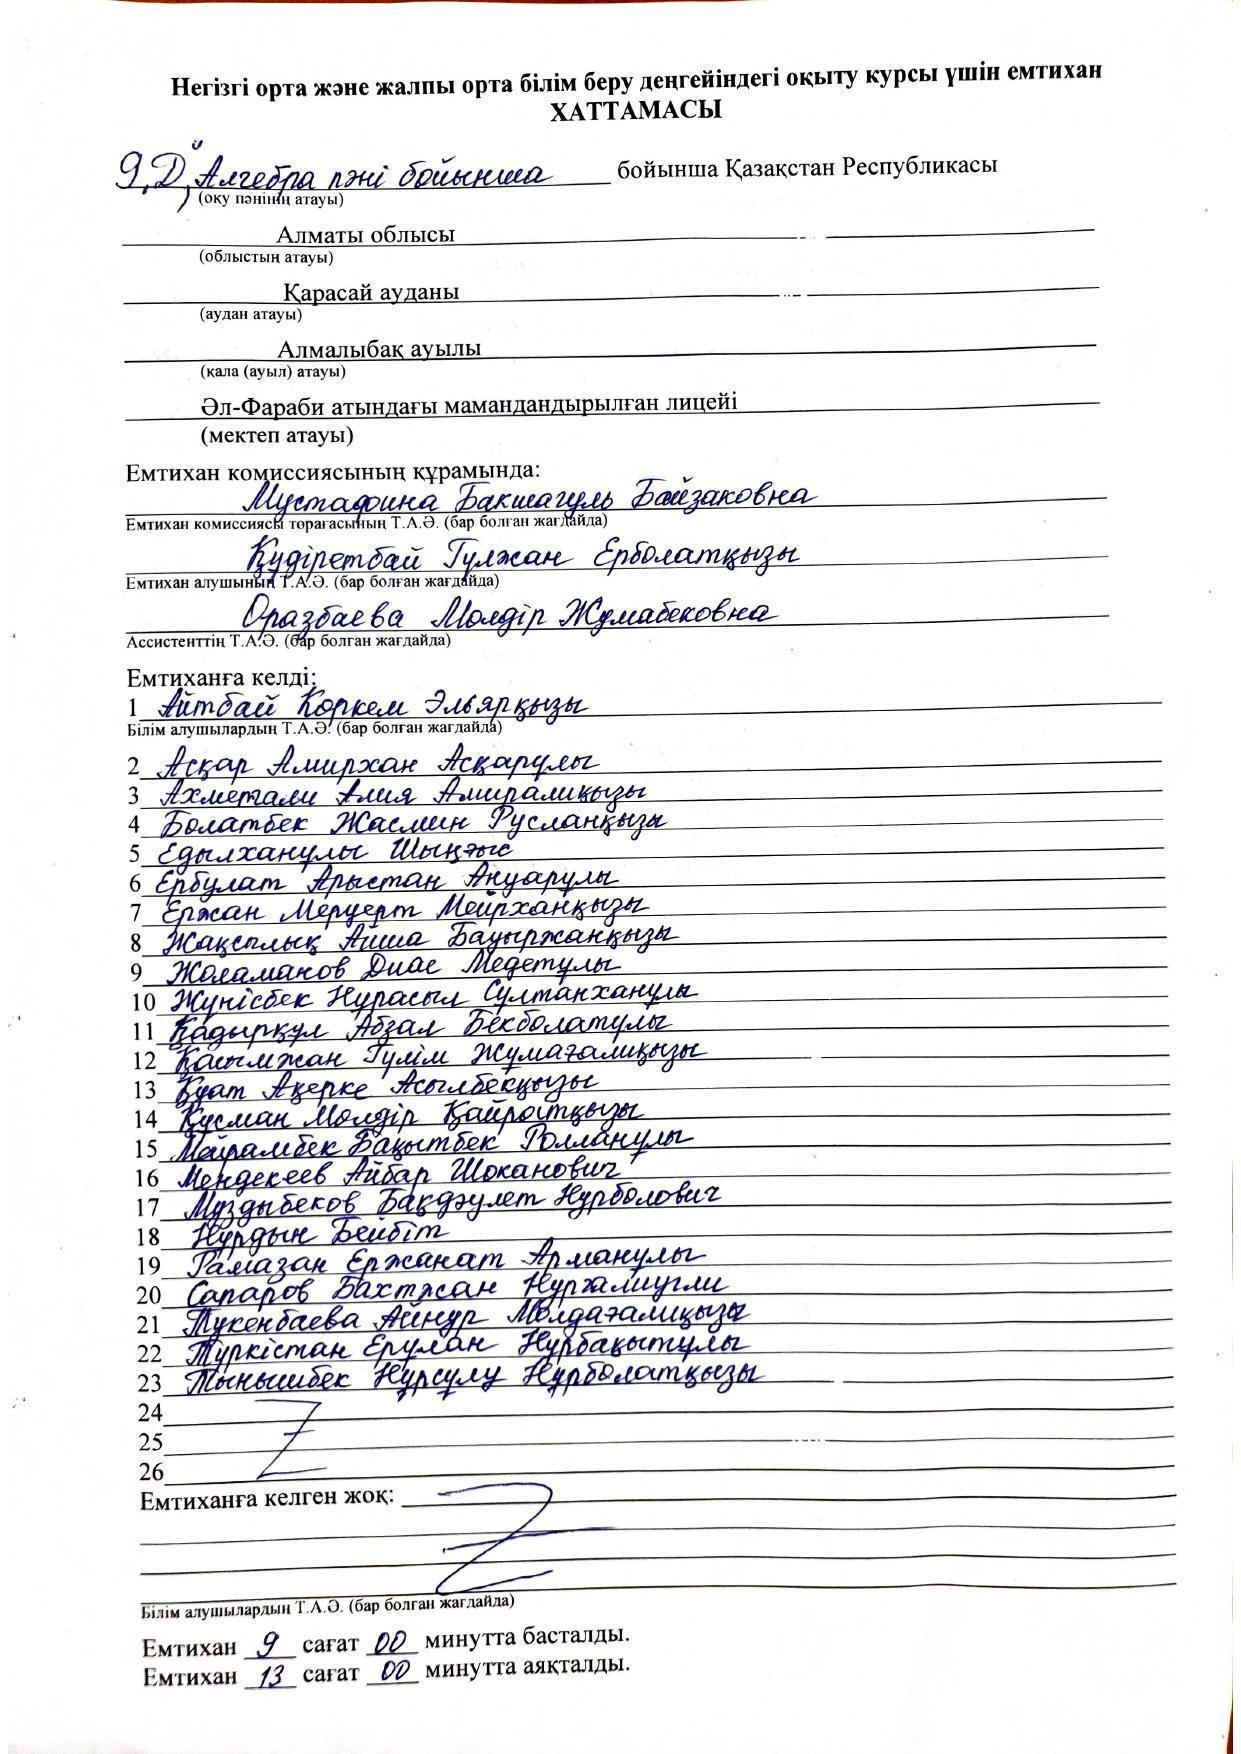 Негізгі орта және жалпы орта білім беру деңгейіндегі оқыту курсы үшін емтихан
ХАТТАМАСЫ
9 "Д", Алгебра пәні бойынша бойынша Қазақстан Республикасы
(оқу пәнінің атауы)
Алматы облысы
(облыстың атауы)
Қарасай ауданы
(аудан атауы)
Алмалыбақ ауылы
(қала (ауыл) атауы)
Әл-Фараби атындағы мамандандырылған лицейі
(мектеп атауы)
Емтихан комиссиясының құрамында:
Мустафина Бакшагуль Байзаковна
Емтихан комиссиясы төрағасының Т.А.Ә. (бар болған жағдайда)
Құдіретбай Гүлжан Ерболатқызы
Емтихан алушының Т.А.Ә. (бар болған жағдайда)
Оразбаева Молдір Жумабековна
Ассистенттің Т.А.Ә. (бар болған жағдайда)
Емтиханға келді:
1 Айтбай Көркем Эльярқызы
Білім алушылардың Т.А.Ә. (бар болған жағдайда)
2 Асқар Амирхан Асқарулы
3 Ахметали Алия Амиралиқызы
4 Болатбек Жасмин Русланқызы
5 Едылханулы Шыңғыс
6 Ербулат Арыстан Ануарулы
7 Ержан Меруерт Мейрханқызы
8 Жақсылық Айша Бауыржанқызы
9 Жоламанов Диас Медетулы
10 Жүнісбек Нұрасыл Сұлтанханұлы
11 Қадырқұл Абзал Бекболатұлы
12 Қасымжан Гүлім Жұмағалиқызы
13 Қуат Ақерке Асылбекқызы
14 Құсман Молдір Қайратқызы
15 Мейрамбек Бақытбек Ролланұлы
16 Мендекеев Айбар Шоканович
17 Муздыбеков Бақдәулет Нурболович
18 Нұрдын Бейбіт
19 Рамазан Ержанат Арманұлы
20 Сапаров Бахтжан Нурғалиугли
21 Тукенбаева Айнур Молдағалиқызы
22 Түркістан Ерулан Нұрбақытұлы
23 Тынышбек Нұрсұлу Нұрболатқызы
24
25
26
Емтиханға келген жоқ:
Білім алушылардың Т.А.Ә. (бар болған жағдайда)
Емтихан 9 сағат 00 минутта басталды.
Емтихан 13 сағат 00 минутта аяқталды.